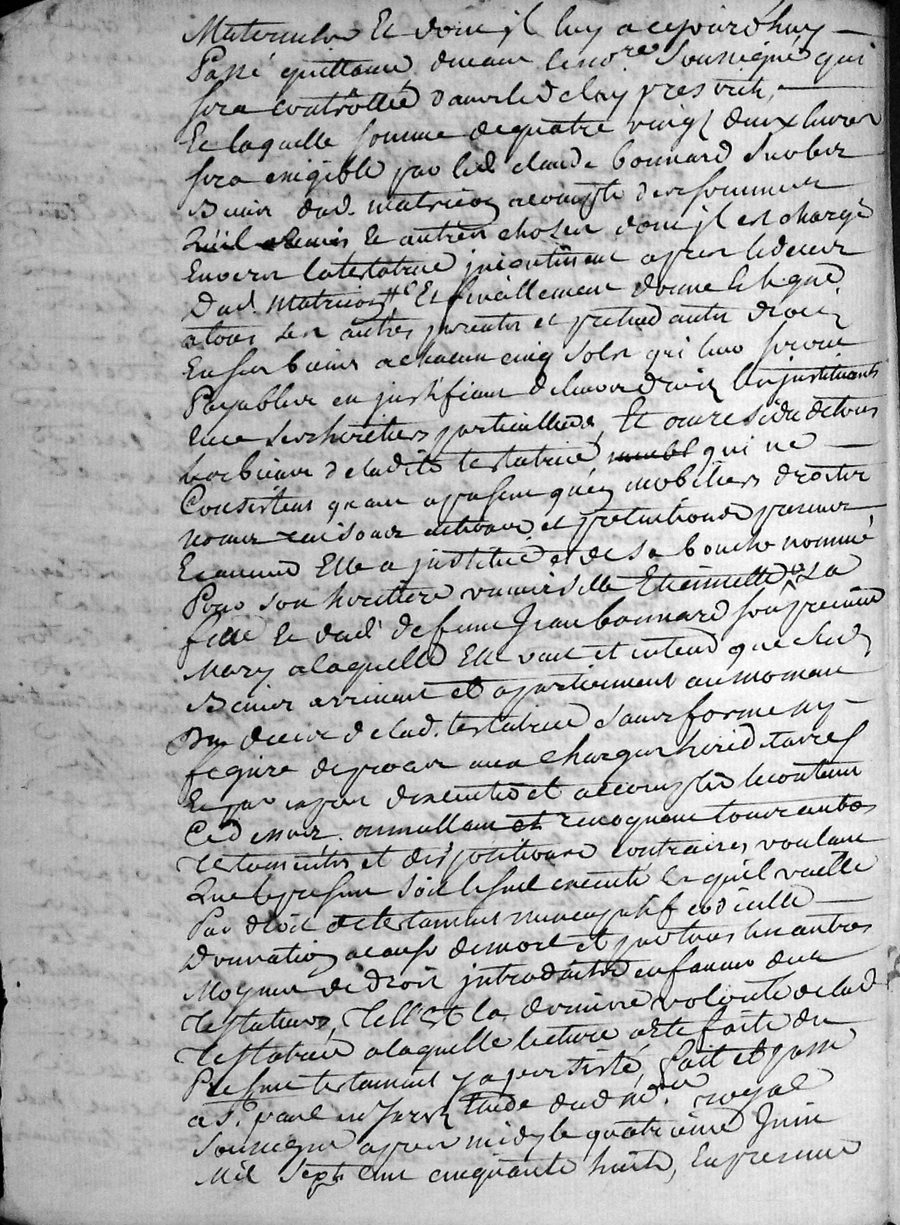 Maternels Et dont jl luy a cejourd'huy
Passé quittance devant le no.re soussigné qui
sera controllée dans le delay prescrit,
Et laquelle somme de quatre vingt deux livres
sera exigible par led. claude bonnard sur les
Biens dud. matricon acompte des sommes
Qu'il et autres choses dont jl est chargé
Envers latestatrice jncontinent apres le deces
Dud. Matricon Et finallement donne Et legue
atous ses autres parents et pretendants droit
En ses biens achacun cinq sols qui leur seront
Payables en justifiant de leurs droits les jnstituants
En ce ses heritiers particulliers, Et au residu de tous
les biens de ladite testatrice qui ne
Consistent quant apresent qu'en mobiliers droits
noms raisons actions et pretentions
Elle a jnstitué et de sa bouche nommé
Pour son heritiere universelle Etiennette sa
fille Et dud. defunt Jean bonnard son premier
Mary alaquelle Elle veut et entend que sesd.
Biens arrivent et apartiennent au moment
Du deces de lad. testatrice sans forme ny
figure de proces aux charges hereditaires
Et par expres d'executer et accomplir le contenu
Cy dessus annullant et revoquant tous autres
testaments et dispositions contraires voulant
Que le present soit le seul executé Et qu'il vaille
Par droit de testament nuncupatif codicille
Donnation acause de mort et par tous les autres
Moyens de droit jntroduits en faveur des
testateurs, telle Est la derniere volonté de lad.
testatrice alaquelle lecture a été faite du
Present testament y a persisté, fait et passé
a S.t paul en Jarrez Etude dud. no.re royal
soussigné apres midy le quatrieme Juin
Mil sept cent cinquante huit, En presence